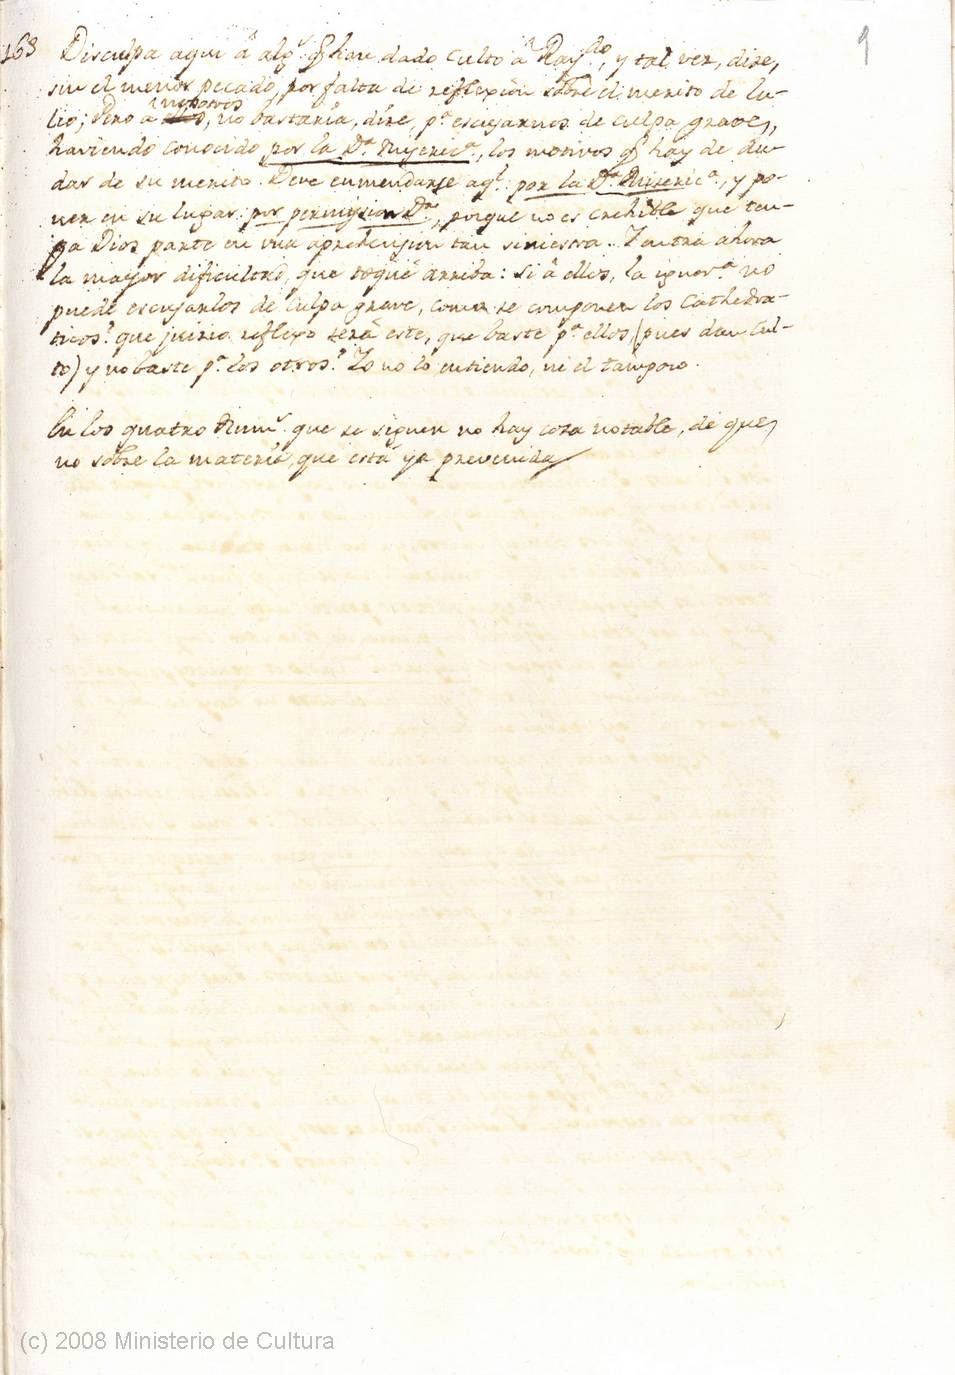 163 Disculpa aqui â alg.s q han dado culto â Ray.do, y tal vez, dize,
sin el menor pecado, por falta de reflexiòn sobre el merito de Lu-
lio; Pero a nosotros, no bastarìa, dize, p.a escusarnos de culpa grave,
haviendo conocido por la D.a Miseric.a, los motivos q hay de du-
dar de su merito. Deve enmendarse aq.l por la D.a Miseric.a, y po-
ner en su lugar: por permission D.a, porque no es crehible que ten-
ga Dios parte en una aprehension tan siniestra. Y entra ahora
la mayor dificultad, que toquè arriba: Si â ellos, la ignor.a no
puede escusarlos de culpa grave, como se componen los Cathedra-
ticos? que juizio reflexo serà este, que baste p.a ellos, (pues dan Cul-
to) y no baste p.a los otros? Yo no lo entiendo, ni el tampoco.
En los quatro Num.s que se siguen no hay cosa notable, de que,
no sobre la materia, que està ya prevenida
9
(c) 2008 Ministerio de Cultura